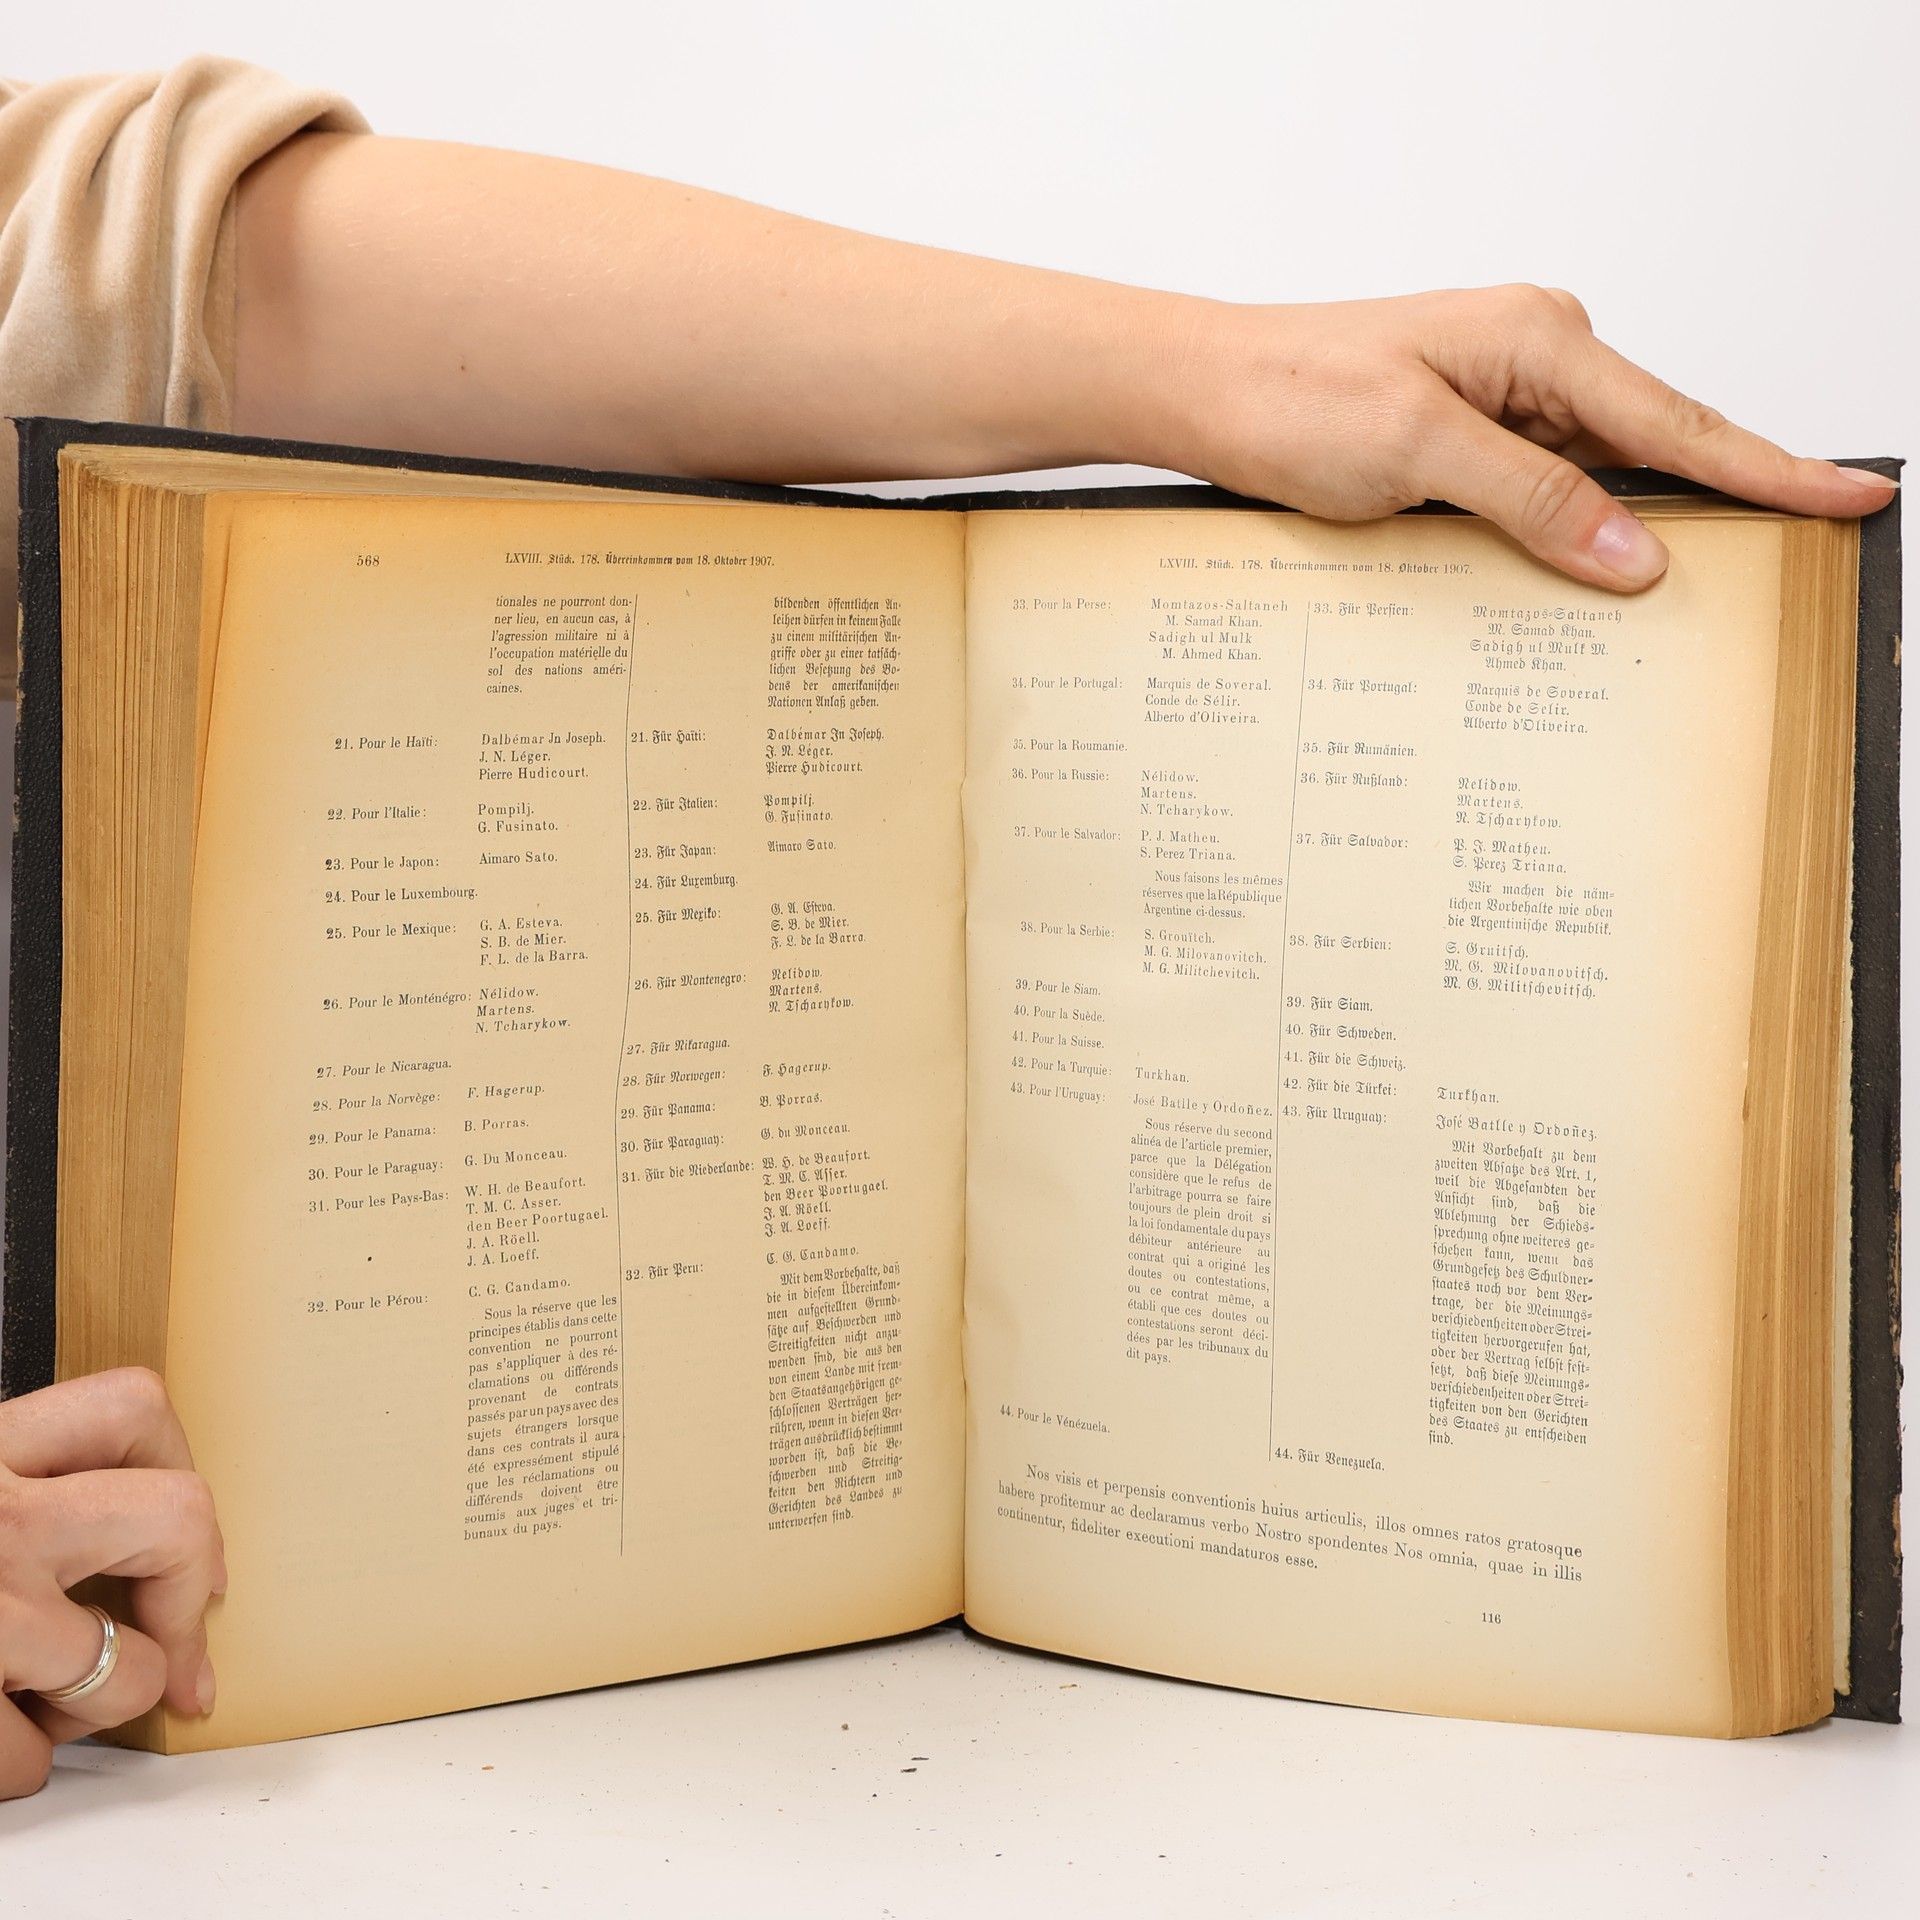 568
LXVIII. Stück. 178. Übereinkommen vom 18. Oktober 1907.
tionales ne pourront don-
ner lieu, en aucun cas, à
l'agression militaire ni à
l'occupation matérielle du
sol des nations améri-
caines.
21. Pour le Haïti: Dalbémar Jn Joseph.
J. N. Léger.
Pierre Hudicourt.
22. Pour l'Italie: Pompilj.
G. Fusinato.
23. Pour le Japon: Aimaro Sato.
24. Pour le Luxembourg.
25. Pour le Mexique: G. A. Esteva.
S. B. de Mier.
F. L. de la Barra.
26. Pour le Monténégro: Nélidow.
Martens.
N. Tcharykow.
27. Pour le Nicaragua.
28. Pour la Norvège: F. Hagerup.
29. Pour le Panama: B. Porras.
30. Pour le Paraguay: G. Du Monceau.
31. Pour les Pays-Bas: W. H. de Beaufort.
T. M. C. Asser.
den Beer Poortugael.
J. A. Röell.
J. A. Loeff.
32. Pour le Pérou: C. G. Candamo.
Sous la réserve que les
principes établis dans cette
convention ne pourront
pas s'appliquer à des ré-
clamations ou différends
provenant de contrats
passés par un pays avec des
sujets étrangers lorsque
dans ces contrats il aura
été expressément stipulé
que les réclamations ou
différends doivent être
soumis aux juges et tri-
bunaux du pays.
bildenden öffentlichen An-
leihen dürfen in keinem Falle
zu einem militärischen An-
griffe oder zu einer tatsäch-
lichen Besetzung des Bo-
dens der amerikanischen
Nationen Anlaß geben.
21. Für Haïti: Dalbémar Jn Joseph.
J. N. Léger.
Pierre Hudicourt.
22. Für Italien: Pompilj.
G. Fusinato.
23. Für Japan: Aimaro Sato.
24. Für Luxemburg.
25. Für Mexiko: G. A. Esteva.
S. B. de Mier.
F. L. de la Barra.
26. Für Montenegro: Nelidow.
Martens.
N. Tscharykow.
27. Für Nikaragua.
28. Für Norwegen: F. Hagerup.
29. Für Panama: B. Porras.
30. Für Paraguay: G. du Monceau.
31. Für die Niederlande: W. H. de Beaufort.
T. M. C. Asser.
den Beer Poortugael.
J. A. Röell.
J. A. Loeff.
32. Für Peru: C. G. Candamo.
Mit dem Vorbehalte, daß
die in diesem Übereinkom-
men aufgestellten Grund-
sätze auf Beschwerden und
Streitigkeiten nicht anzu-
wenden sind, die aus den
von einem Lande mit frem-
den Staatsangehörigen ge-
schlossenen Verträgen her-
rühren, wenn in diesen Ver-
trägen ausdrücklich bestimmt
worden ist, daß die Be-
schwerden und Streitig-
keiten den Richtern und
Gerichten des Landes zu
unterwerfen sind.
LXVIII. Stück. 178. Übereinkommen vom 18. Oktober 1907.
33. Pour la Perse: Momtazos-Saltaneh
M. Samad Khan.
Sadigh ul Mulk
M. Ahmed Khan.
34. Pour le Portugal: Marquis de Soveral.
Conde de Sélir.
Alberto d'Oliveira.
35. Pour la Roumanie.
36. Pour la Russie: Nélidow.
Martens.
N. Tcharykow.
37. Pour le Salvador: P. J. Matheu.
S. Perez Triana.
Nous faisons les mêmes
réserves que la République
Argentine ci-dessus.
38. Pour la Serbie: S. Grouïtch.
M. G. Milovanovitch.
M. G. Militchevitch.
39. Pour le Siam.
40. Pour la Suède.
41. Pour la Suisse.
42. Pour la Turquie: Turkhan.
43. Pour l'Uruguay: José Batlle y Ordoñez.
Sous réserve du second
alinéa de l'article premier,
parce que la Délégation
considère que le refus de
l'arbitrage pourra se faire
toujours de plein droit si
la loi fondamentale du pays
débiteur antérieure au
contrat qui a originé les
doutes ou contestations,
ou ce contrat même, a
établi que ces doutes ou
contestations seront déci-
dées par les tribunaux du
dit pays.
44. Pour le Vénézuela.
33. Für Persien: Momtazos-Saltaneh
M. Samad Khan.
Sadigh ul Mulk M.
Ahmed Khan.
34. Für Portugal: Marquis de Soveral.
Conde de Selir.
Alberto d'Oliveira.
35. Für Rumänien.
36. Für Rußland: Nelidow.
Martens.
N. Tscharykow.
37. Für Salvador: P. J. Matheu.
S. Perez Triana.
Wir machen die näm-
lichen Vorbehalte wie oben
die Argentinische Republik.
38. Für Serbien: S. Gruitsch.
M. G. Milovanovitsch.
M. G. Militschevitsch.
39. Für Siam.
40. Für Schweden.
41. Für die Schweiz.
42. Für die Türkei: Turkhan.
43. Für Uruguay: José Batlle y Ordoñez.
Mit Vorbehalt zu dem
zweiten Absatze des Art. 1,
weil die Abgesandten der
Ansicht sind, daß die
Ablehnung der Schieds-
sprechung ohne weiteres ge-
schehen kann, wenn das
Grundgesetz des Schuldner-
staates noch vor dem Ver-
trage, der die Meinungs-
verschiedenheiten oder Strei-
tigkeiten hervorgerufen hat,
oder der Vertrag selbst fest-
setzt, daß diese Meinungs-
verschiedenheiten oder Strei-
tigkeiten von den Gerichten
des Staates zu entscheiden
sind.
44. Für Venezuela.
Nos visis et perpensis conventionis huius articulis, illos omnes ratos gratosque
habere profitemur ac declaramus verbo Nostro spondentes Nos omnia, quae in illis
continentur, fideliter executioni mandaturos esse.
116